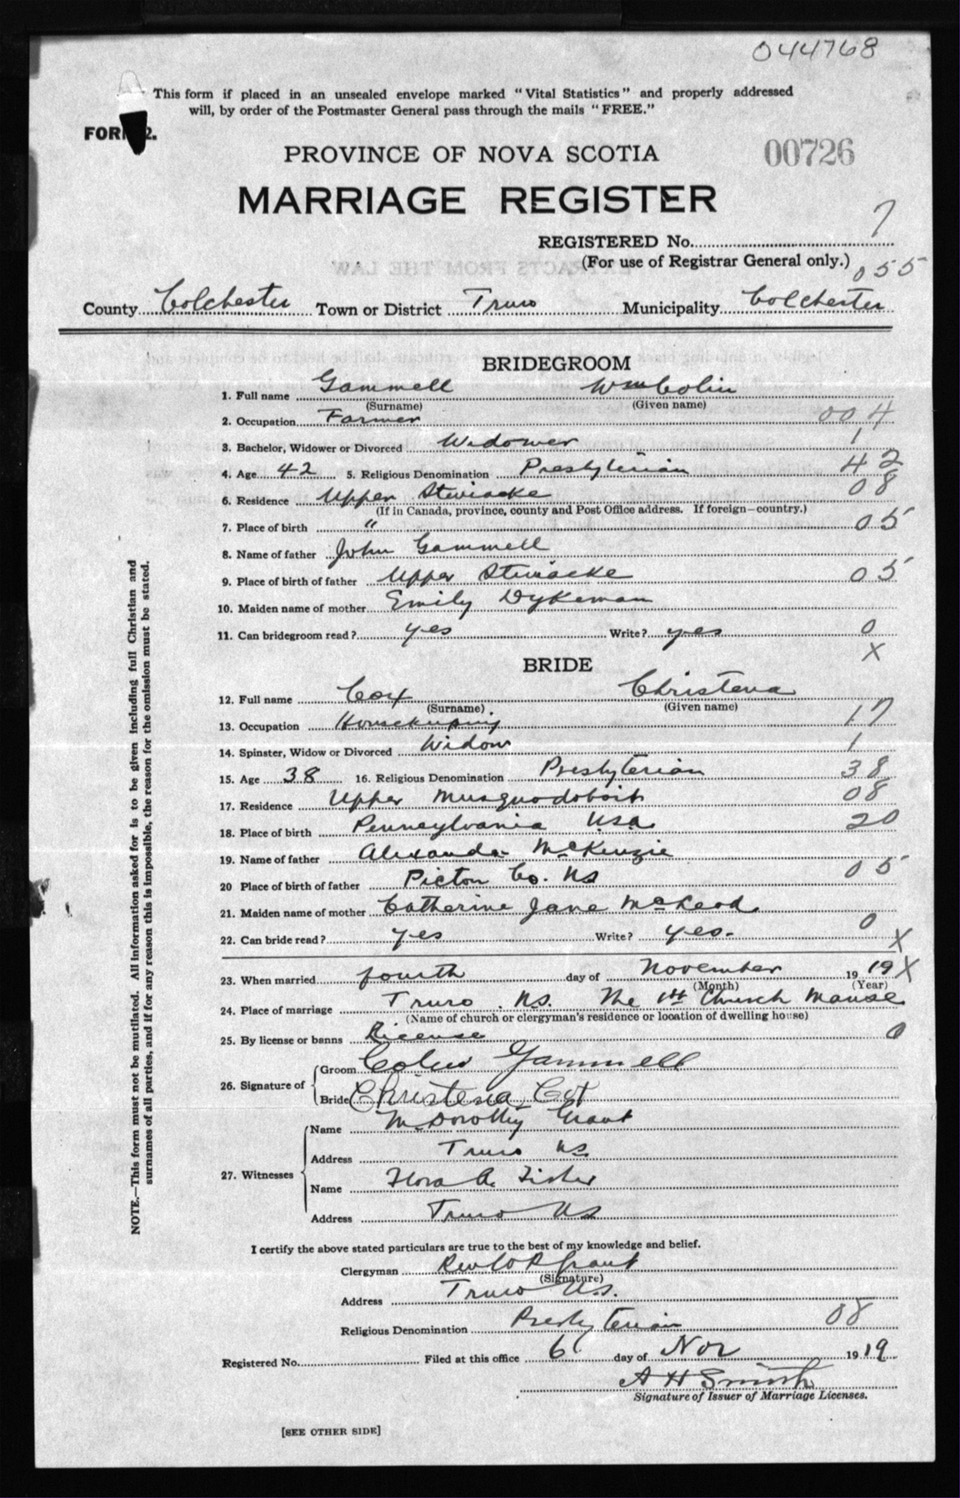 044768
This form if placed in an unsealed envelope marked "Vital Statistics" and properly addressed
will, by order of the Postmaster General pass through the mails "FREE."
FORM 2.
PROVINCE OF NOVA SCOTIA
00726
MARRIAGE REGISTER
REGISTERED No. 7
(For use of Registrar General only.) 055
County Colchester Town or District Truro Municipality Colchester
BRIDEGROOM
1. Full name Gammell Wm Colin
(Surname) (Given name)
2. Occupation Farmer 004
3. Bachelor, Widower or Divorced Widower 1
4. Age 42 5. Religious Denomination Presbyterian 42
6. Residence Upper Stewiacke 08
(If in Canada, province, county and Post Office address. If foreign—country.)
7. Place of birth " 05
8. Name of father John Gammell
9. Place of birth of father Upper Stewiacke 05
10. Maiden name of mother Emily Dykeman
11. Can bridegroom read? yes Write? yes 0
X
BRIDE
12. Full name Cox Christena
(Surname) (Given name)
13. Occupation Housekeeping 17
14. Spinster, Widow or Divorced Widow 1
15. Age 38 16. Religious Denomination Presbyterian 38
17. Residence Upper Musquodoboit 08
18. Place of birth Pennsylvania USA 20
19. Name of father Alexander McKenzie
20 Place of birth of father Pictou Co. NS 05
21. Maiden name of mother Catherine Jane McLeod
22. Can bride read? yes Write? yes. 0
X
23. When married fourth day of November 19 19 X
(Month) (Year)
24. Place of marriage Truro NS. The 1st Church Manse
(Name of church or clergyman's residence or location of dwelling house)
25. By license or banns License 0
26. Signature of Groom Colin Gammell
Bride Christena Cox
27. Witnesses Name M Dorothy Grant
Address Truro NS.
Name Flora A. Fisher
Address Truro NS
I certify the above stated particulars are true to the best of my knowledge and belief.
Clergyman Rev Grant
(Signature)
Address Truro N.S.
Religious Denomination Presbyterian 08
Registered No. Filed at this office 6 day of Nov 19 19
A H Smith
Signature of Issuer of Marriage Licenses.
[SEE OTHER SIDE]
NOTE.—This form must not be mutilated. All information asked for is to be given including full Christian and
surnames of all parties, and if for any reason this is impossible, the reason for the omission must be stated.